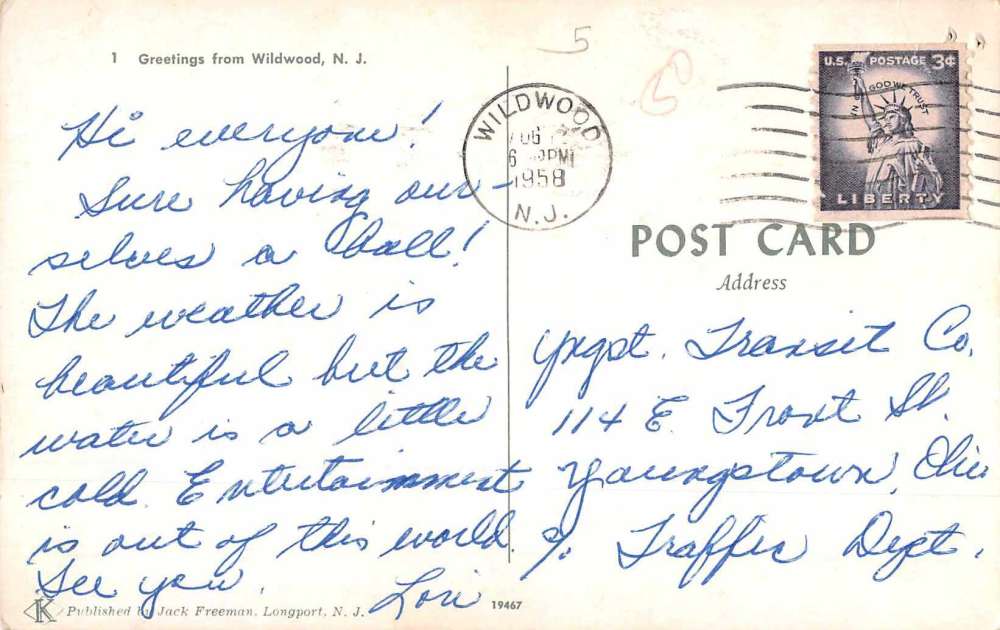 1 Greetings from Wildwood, N. J.
5
50
Hi everyone!
Sure having our-
selves a ball!
The weather is
beautiful but the
water is a little
cold. Entertainment
is out of this world.
See you.
Lori
K Published by Jack Freeman, Longport, N. J.
19467
WILDWOOD
AUG
6 PM
1958
N.J.
U.S. POSTAGE 3¢
IN GOD WE TRUST
LIBERTY
POST CARD
Address
Yngst. Transit Co.
114 E. Front St.
Youngstown, Ohio
% Traffic Dept.